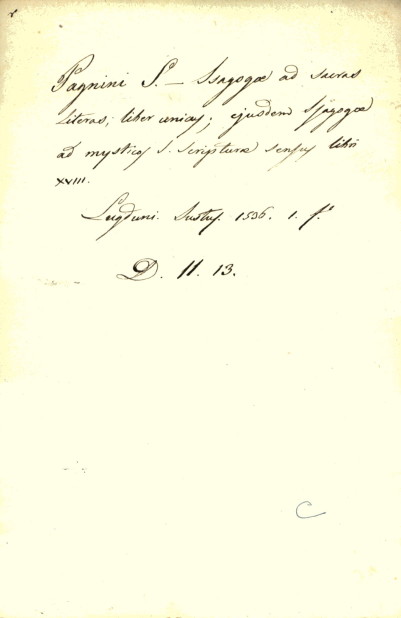 Pagnini S. — Isagogæ ad sacras
Literas, liber unicus; ejusdem Isagogæ
ad mysticos S. Scripturæ sensus libri
XVIII.
Lugduni. 1536. 1. f.º
D. 11. 13.
C